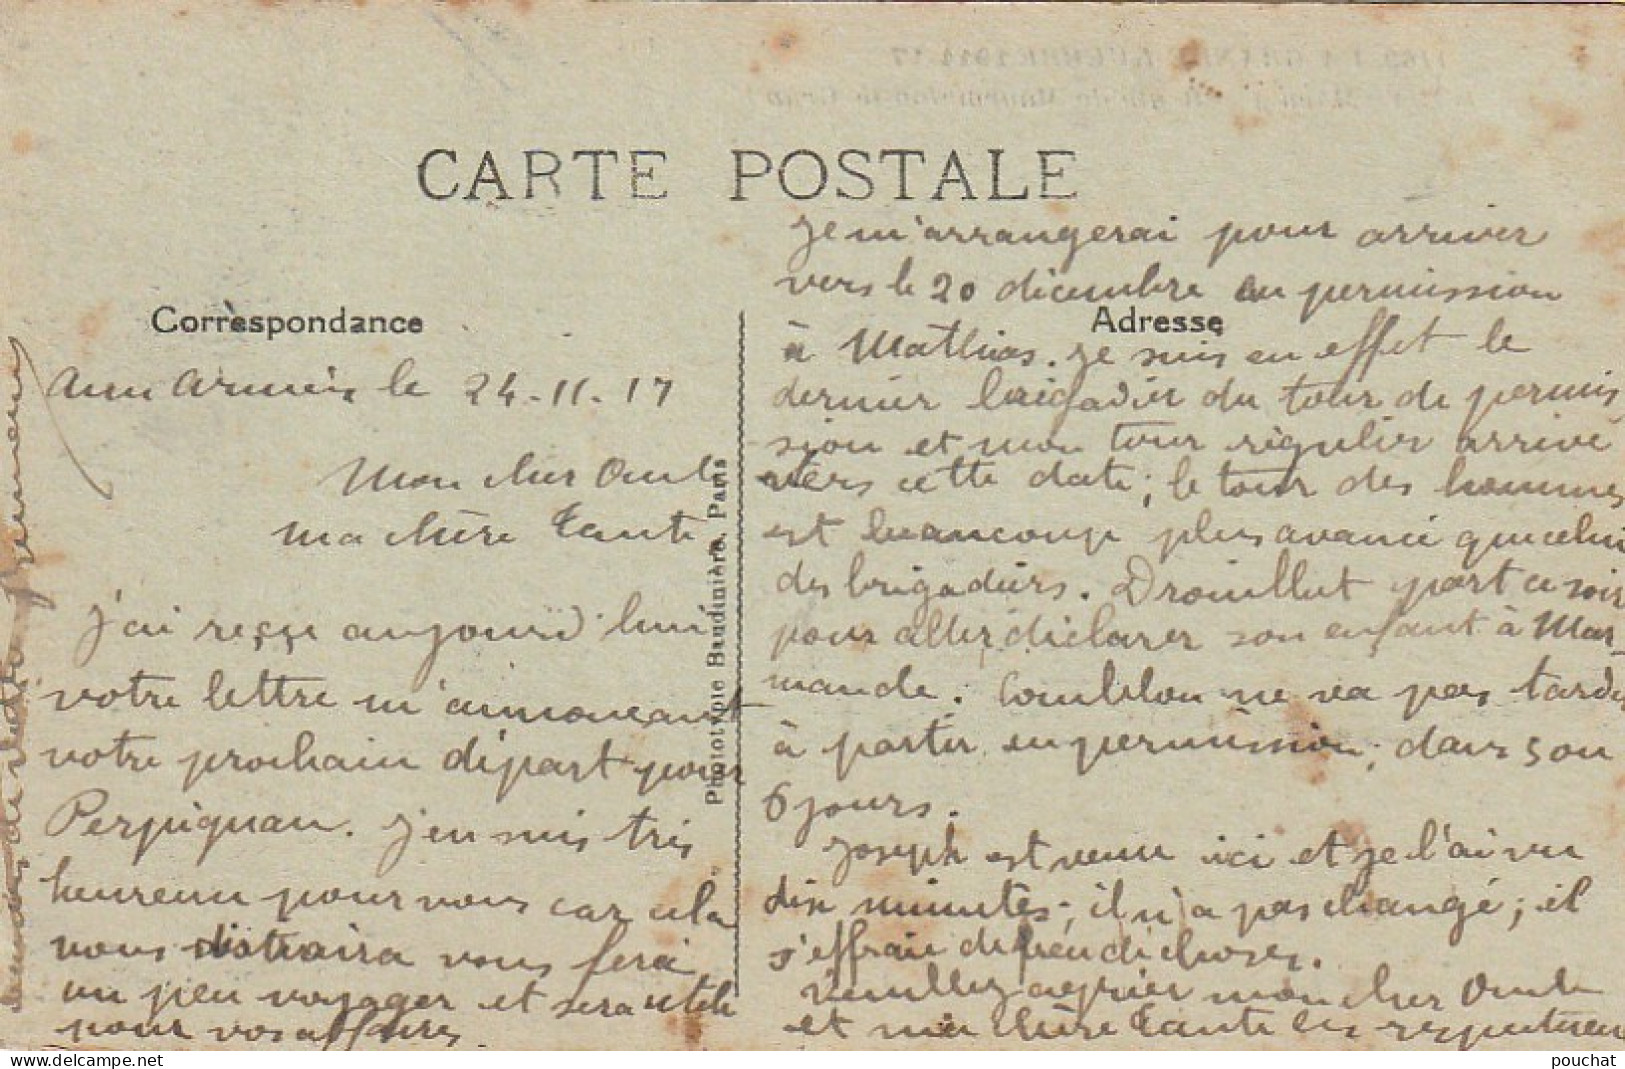 CARTE POSTALE
Correspondance
Adresse
Phototypie Baudinière, Paris
Aux Armées le 24-11-17
Mon cher Oncle
ma chère Tante
J'ai reçu aujourd'hui
votre lettre m'annonçant
votre prochain départ pour
Perpignan. J'en suis très
heureux pour vous car cela
vous distraira vous fera
un peu voyager et sera utile
pour vos affaires.
Je m'arrangerai pour arriver
vers le 20 décembre en permission
à Mathias. Je suis en effet le
dernier brigadier du tour de permis-
sion et mon tour régulier arrive
vers cette date; le tour des hommes
est beaucoup plus avancé que celui
des brigadiers. Drouillet part ce soir
pour aller déclarer son enfant à Mar-
mande. Comblon ne va pas tarder
à partir en permission; dans 5 ou
6 jours.
Joseph est venu ici et je l'ai vu
dix minutes; il n'a pas changé; il
s'effraie de peu de choses.
Veuillez agréer mon cher Oncle
et ma chère Tante les respectueux
de votre
pouchat
delcampe.net